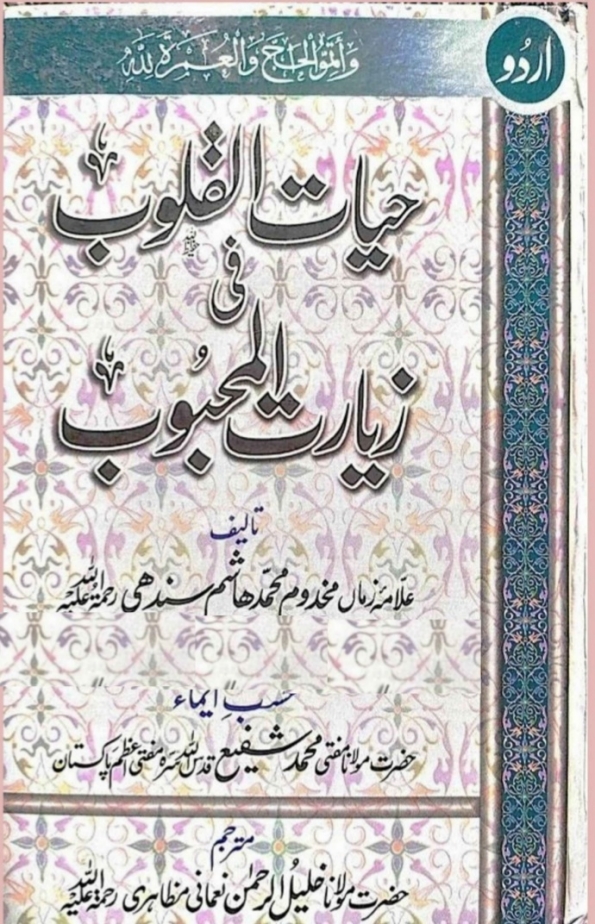 وَأَتِمُّوا الْحَجَّ وَالْعُمْرَةَ لِلَّهِ
اردُو
حیات القلوب
فی
زیارت المحبُوب
تالیف
علّامۂ زماں مخدوم محمّد ھاشم سندھی رحمۃ اللہ علیہ
حسبِ ایماء
حضرت مولانا مفتی محمد شفیع قدس اللہ سرہ مفتی اعظم پاکستان
مترجم
حضرت مولانا خلیل الرحمٰن نعمانی مظاہری رحمۃ اللہ علیہ